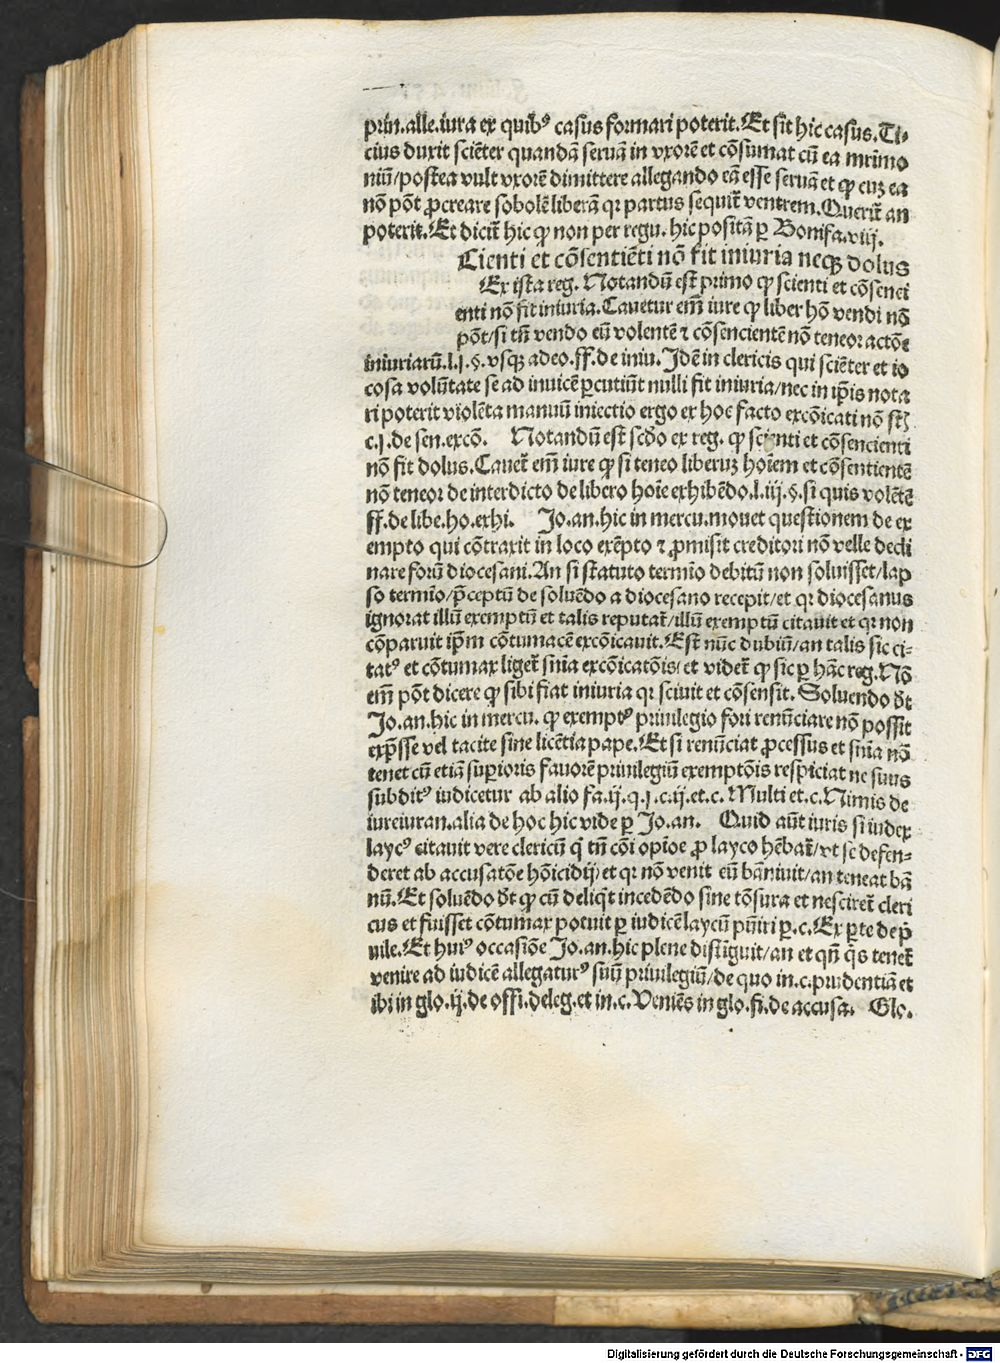 prin.alle.iura ex quibꝰ casus formari poterit.Et sit hic casus.Ti-
cius duxit sciẽter quandã seruã in vxorẽ et cõsumat cũ ea mr̃imo
niũ/postea vult vxorẽ dimittere allegando eã esse seruã et ꝙ cuꝫ ea
nõ põt ꝓcreare sobolẽ liberã qꝛ partus sequit̃ ventrem.Querit̃ an
poterit.Et dicit̃ hic ꝙ non per regu. hic positã ꝑ Bonifa.viij.
Cienti et cõsentiẽti nõ fit iniuria neqꝫ dolus
Ex ista reg. Notandũ est primo ꝙ scienti et cõsenci
enti nõ fit iniuria.Cauetur em̃ iure ꝙ liber hõ vendi nõ
põt/si tñ vendo eũ volentẽ ⁊ cõsencientẽ nõ teneoꝛ actõe
iniuriarũ.l.j.§.vsqꝫ adeo.ff.de iniu. Jdẽ in clericis qui sciẽter et io
cosa volũtate se ad inuicẽ ꝑcutiũt nulli fit iniuria/nec in ip̃is nota
ri poterit violẽta manuũ iniectio ergo ex hoc facto excõicati nõ st̃
c.j.de sen.excõ. Notandũ est scd̃o ex reg. ꝙ scienti et cõsencienti
nõ fit dolus.Cauet̃ em̃ iure ꝙ si teneo liberuꝫ hoĩem et cõsentientẽ
nõ teneoꝛ de interdicto de libero hoĩe exhibẽdo.l.iij.§.si quis volẽtẽ
ff.de libe.ho.exhi. Jo.an.hic in mercu.mouet questionem de ex
empto qui cõtraxit in loco exẽpto ⁊ ꝓmisit creditori nõ velle decli
nare forũ diocesani.An si statuto termĩo debitũ non soluisset/lap
so termĩo/p̃ceptũ de soluẽdo a diocesano recepit/et qꝛ diocesanus
ignorat illũ exemptũ et talis reputat̃/illũ exemptũ citauit et qꝛ non
cõparuit ip̃m cõtumacẽ excõicauit.Est nũc dubiũ/an talis sic ci-
tatꝰ et cõtumax liget̃ sñia excõicatõis/ et videt̃ ꝙ sic ꝑ hãc reg.Nõ
em̃ põt dicere ꝙ sibi fiat iniuria qꝛ sciuit et cõsensit. Soluendo dt̃
Jo.an.hic in mercu. ꝙ exemptꝰ priuilegio fori renũciare nõ possit
exp̃sse vel tacite sine licẽtia pape.Et si renũciat ꝓcessus et sñia nõ
tenet cũ etiã suꝑioris fauorẽ priuilegiũ exemptõis respiciat ne suus
subditꝰ iudicetur ab alio fa.ij.q.j.c.ij.et.c. Multi et.c.Nimis de
iureiuran.alia de hoc hic vide ꝑ Jo.an. Quid aũt iuris si iudex
laycꝰ citauit vere clericũ q̃ tñ cõi opĩoe ꝓ layco hẽbat̃/vt se defen-
deret ab accusatõe hõicidij/et qꝛ nõ venit eũ bãniuit/an teneat bã
nũ.Et soluẽdo dt̃ ꝙ cũ deliq̃t incedẽdo sine tõsura et nesciret̃ cleri
cus et fuisset cõtumax potuit ꝑ iudicẽ laycũ pũiri ꝑ.c.Ex ꝑte de p̃
uile.Et huiꝰ occasiõe Jo.an.hic plene distĩguit/an et qñ q̃s tenet̃
venire ad iudicẽ allegaturꝰ suũ priuilegiũ/de quo in.c.prudentiã et
ibi in glo.ij.de offi.deleg.et in.c.Veniẽs in glo.fi.de accusa. Glo.
Digitalisierung gefördert durch die Deutsche Forschungsgemeinschaft - DFG